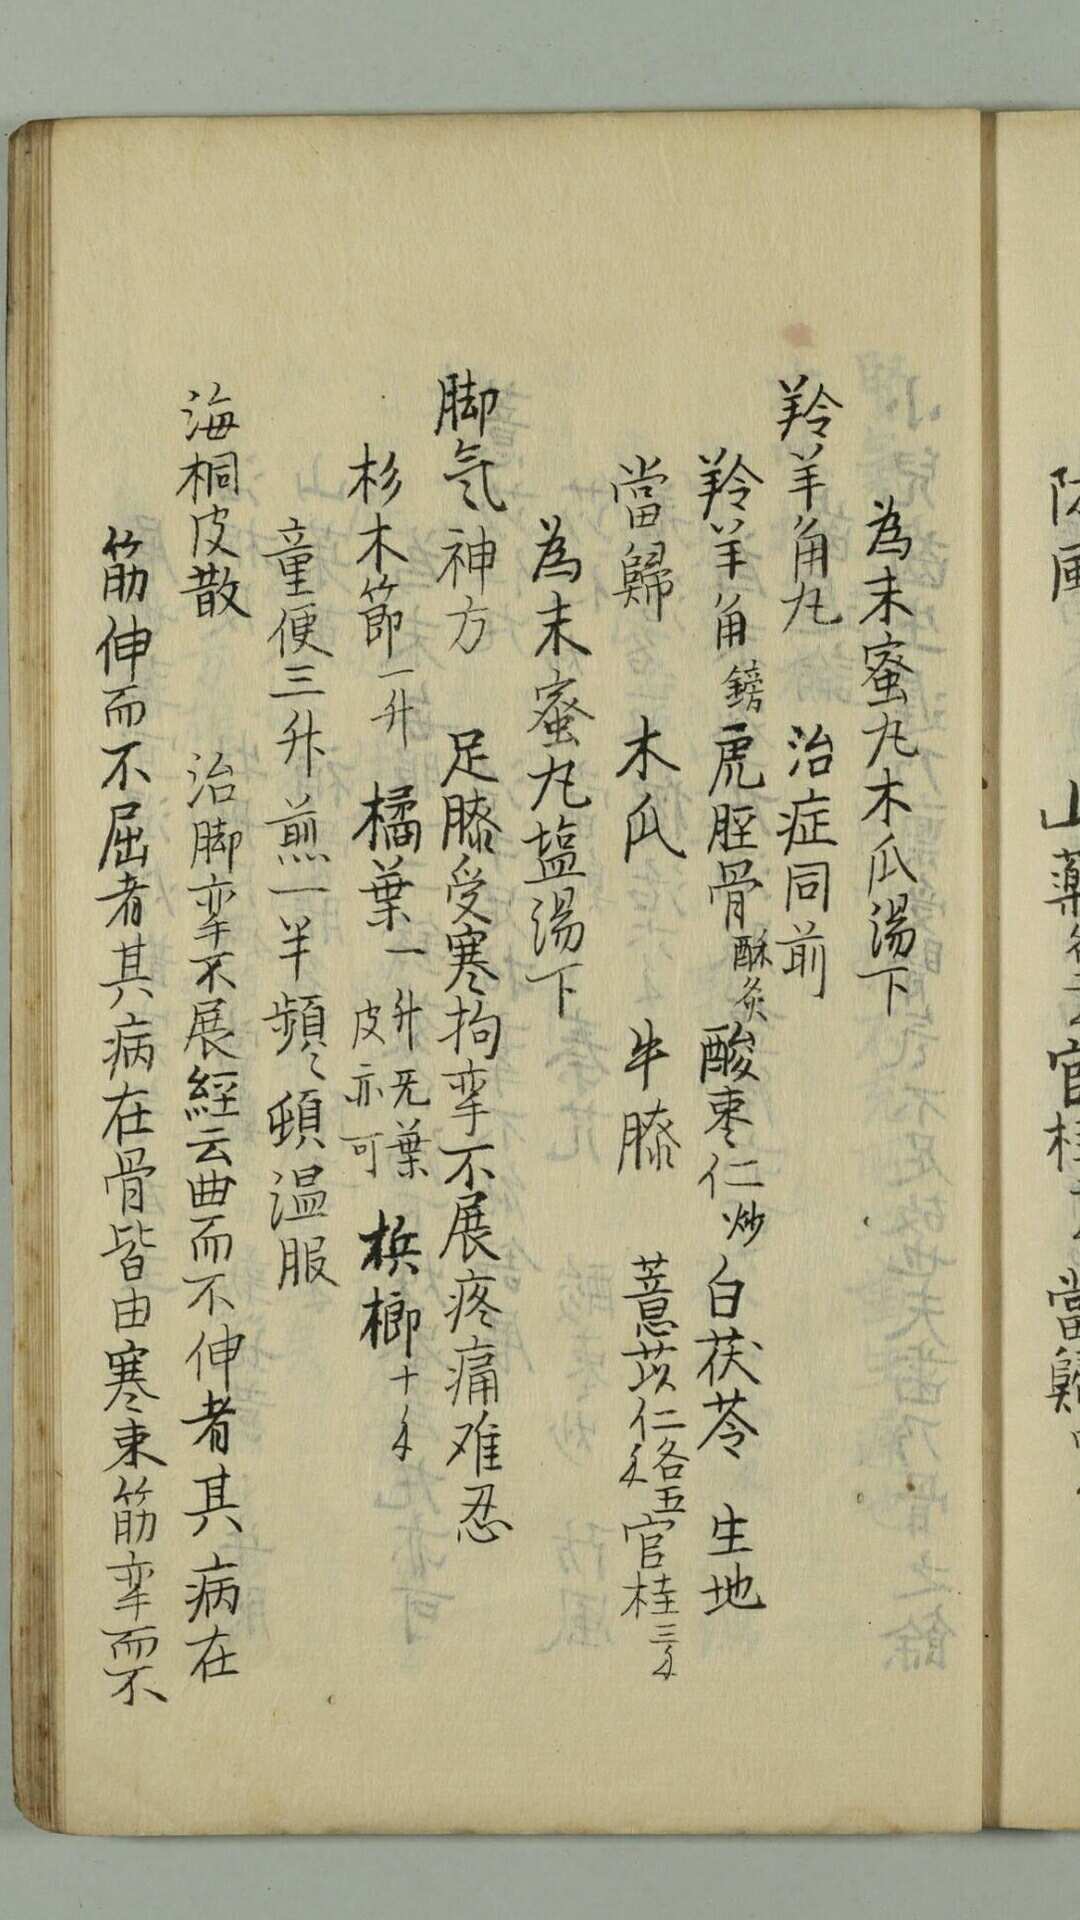 防風 山藥 官桂 當歸
為末蜜丸木瓜湯下
羚羊角丸 治症同前
羚羊角鎊虎脛骨酥炙酸枣仁炒白茯苓 生地
當歸 木瓜 牛膝 薏苡仁各五𠂆官桂三𠂆
為末蜜丸塩湯下
脚氣神方 足膝受寒拘挛不展疼痛难忍
杉木節一升 橘葉一升旡葉皮亦可 梹榔十𠂆
童便三升煎一半頻〻頓温服
海桐皮散 治脚挛不展經云曲而不伸者其病在
筋伸而不屈者其病在骨皆由寒束筋挛而不